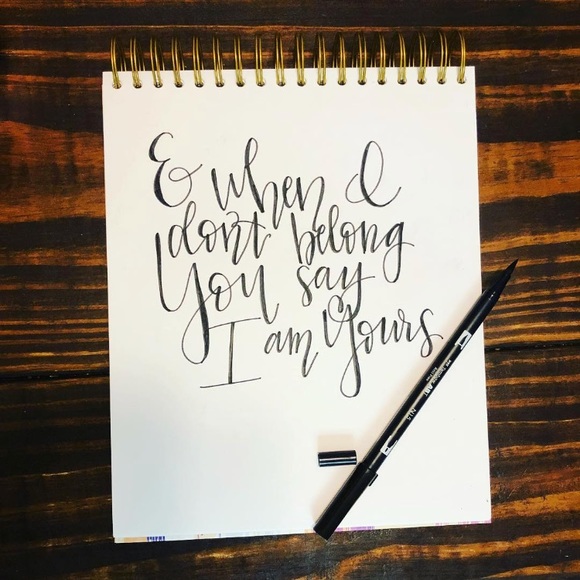 & when I
don't belong
You say
I am Yours
ART
N15